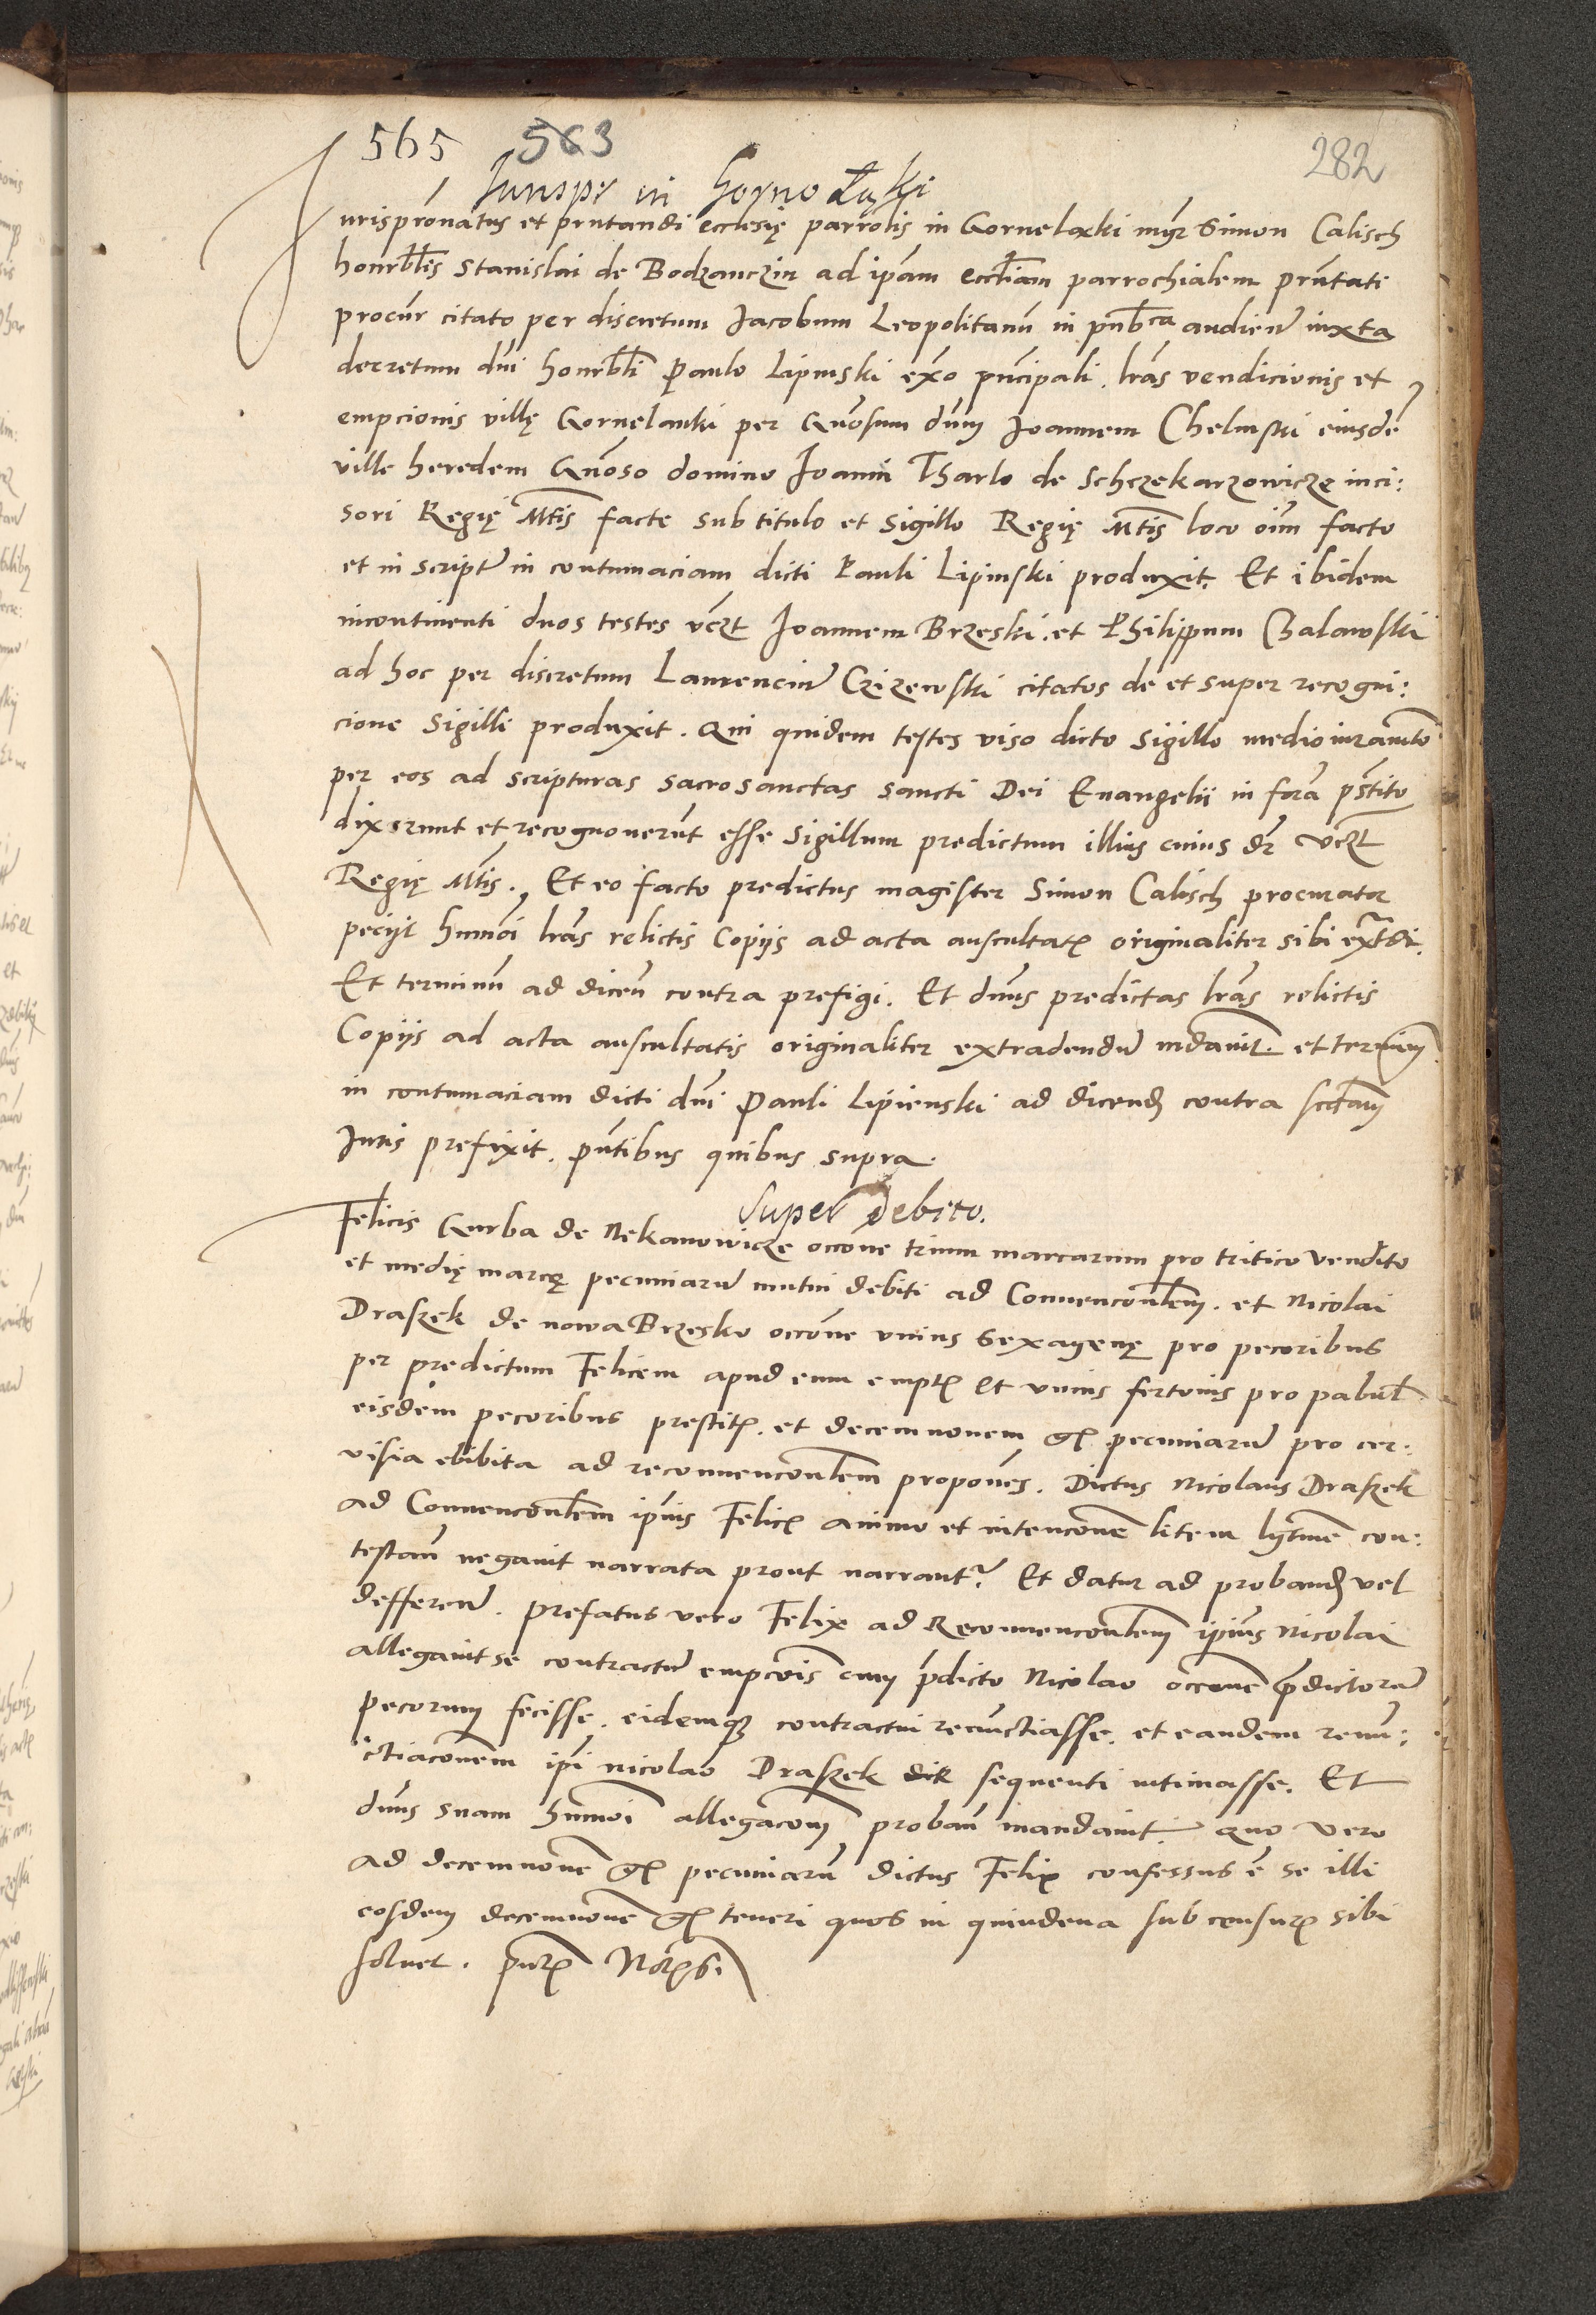 565 563
282
in
Jurispronatus et pñtandi ecclesię parrolis in Gornelaxki mgr Simon Calisch
honrblis Stanislai de Bodzanczin ad ipam eccliam parrochialem prñtati
procur citato per discretum Jacobum Leopolitanũ in publca audien iuxta
decretum dni honrbli Paulo Lipinski exo principali. lras vendicionis et
empcionis villę Gornelanki per Gnosum dnm Joannem Chelmski eiusdẽ
ville heredem Gnoso domino Joanni Tharlo de Schczekarzowicze inci:
sori Regię Mtis facte sub titulo et sigillo Regię Mtis loco oim facto
et in scriptƺ in contumaciam dicti Pauli Lipinski produxit. Et ibidem
incontinenti duos testes vczt Joannem Brzeski. et Philippum Chalawski
ad hoc per discretum Laurenciũ Czizewski citatos de et super recogni:
cione Sigilli produxit. Qui quidem testes viso dicto Sigillo medio iuramto
per eos ad scripturas sacrosanctas sancti Dei Euangelii in fora pstito
dixerunt et recognouerũt esse Sigillum predictum illius cuius dr vczt
Regię Mtis. Et eo facto predictus magister Simon Calisch procurator
peciit hmnoi lras relictis Copijs ad acta auscultatꝭ originaliter sibi extdi.
Et terminũ ad dicen contra prefigi. Et dnus predictas lras relictis
Copijs ad acta auscultatis originaliter extradendũ mdauit. et terminũ
in contumaciam dicti dni Pauli Lipienski ad dicend contra scdam
Juris prefixit. pñtibus quibus supra.
Super Debito.
Felicis Gurba de Nekanowicze occone trium marcarum pro tritico vendito
et medię marcę pecuniarũ mutui debiti ad Conuenconlem. et Nicolai
Draszek de nowa Brzesko occone vnius Sexagenę pro pecoribus
per predictum Felicem apud eum emptꝭ et vnius fertonis pro pabul
eisdem pecoribus prestitꝭ. et decemnouem gꝭ pecuniarũ pro cer:
visia ebibita ad reconuenconlem propones. Dictus Nicolaus Draszek
ad Conuenconlem ipius Felicꝭ animo et intenconẽ litem lytmẽ con:
testan negauit narrata prout narrantr. Et datur ad proband vel
defferen. Prefatus vero Felix ad Reconuenconlem ipius Nicolai
allegauit se contractũ empcois cum pdicto Nicolao occone pdictorũ
pecorum fecisse. eidemqꝫ contractui renũctiasse. et eandem renũ:
ctiaconem ipi Nicolao Draszek die sequenti intimasse. Et
dnus suam hmnoi allegacom proban mandauit. Quo vero
ad decemnouẽ gꝭ pecuniarũ dictus Felix confessus ẽ se illi
eosdem decemnouẽ gꝭ teneri quos in quindena sub censurꝭ sibi
soluet.